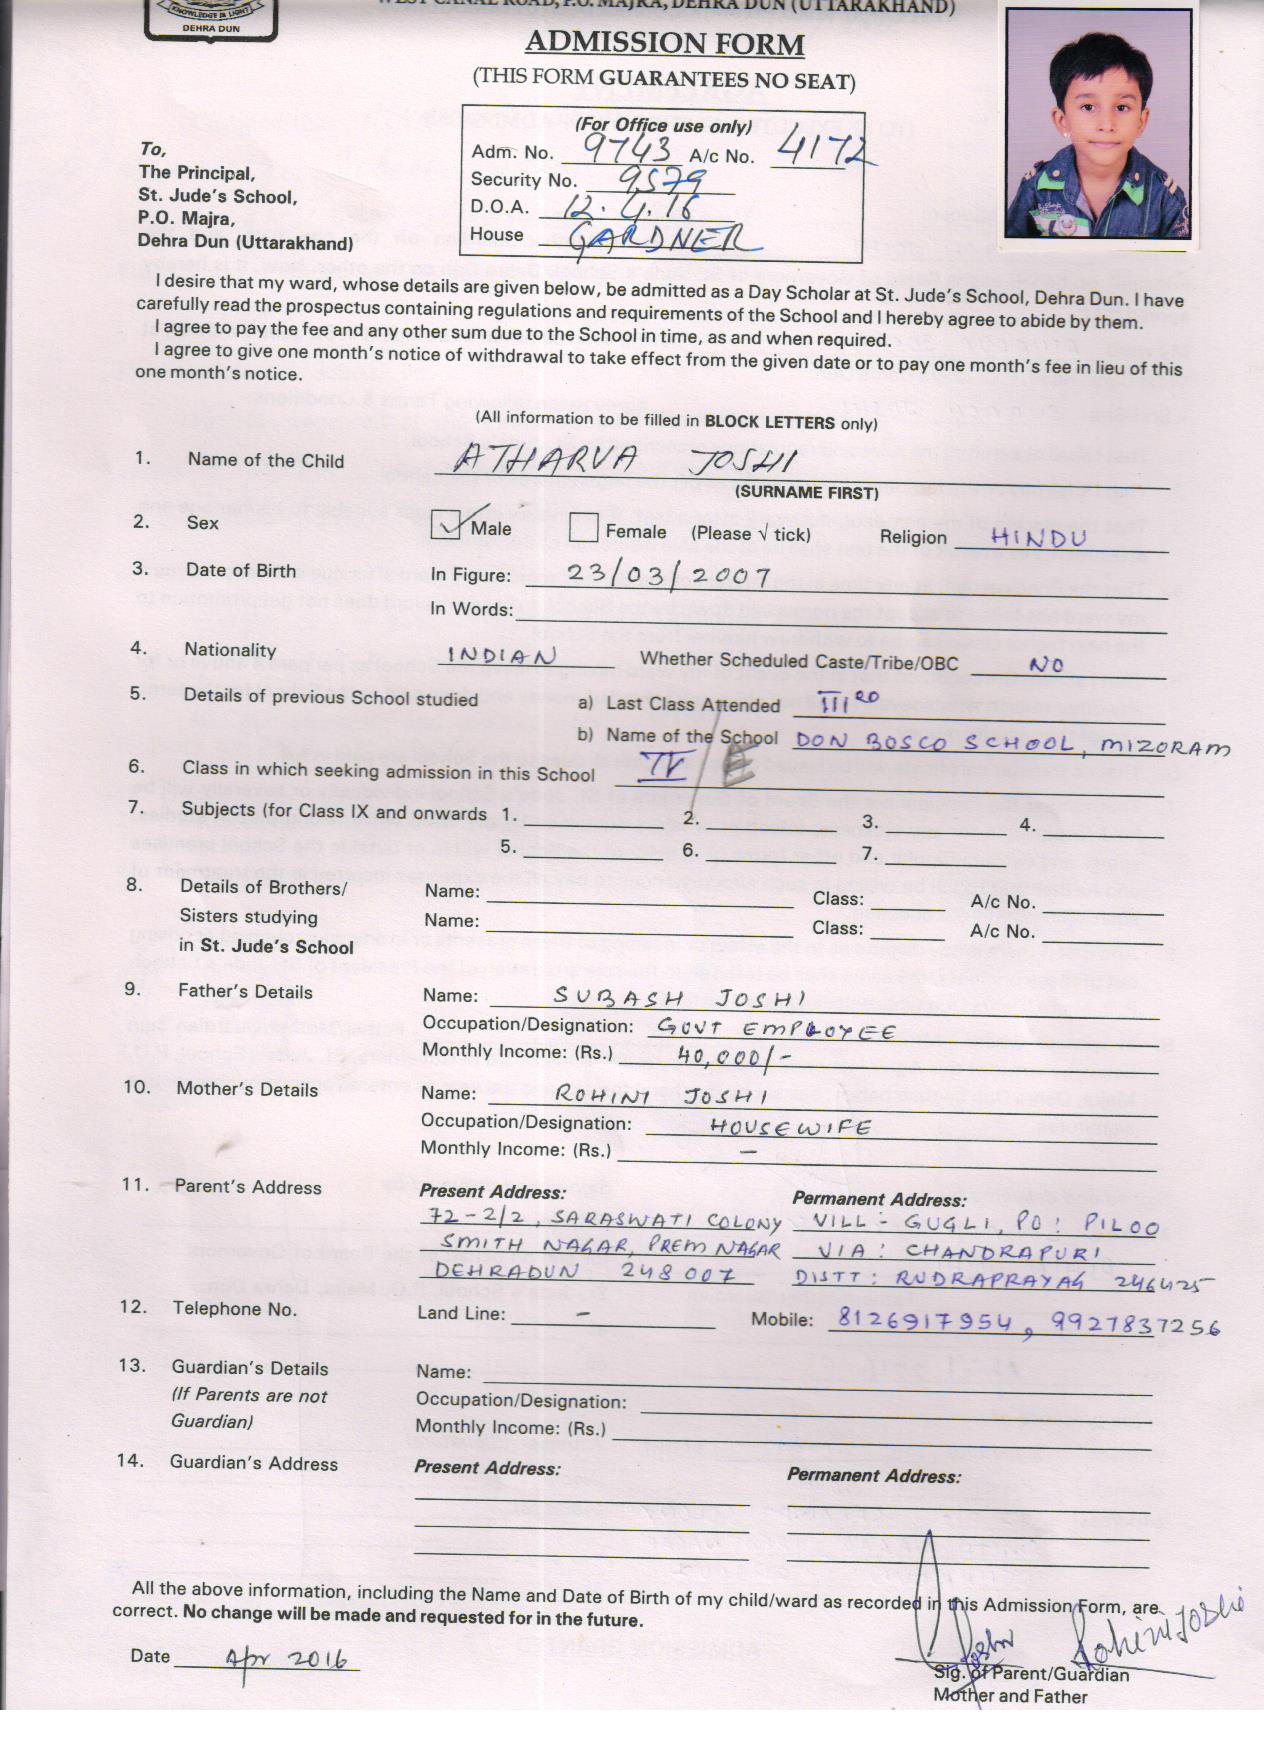 KNOWLEDGE IS LIGHT
DEHRA DUN
WEST CANAL ROAD, P.O. MAJRA, DEHRA DUN (UTTARAKHAND)
ADMISSION FORM
(THIS FORM GUARANTEES NO SEAT)
(For Office use only)
Adm. No. 9743 A/c No. 4172
Security No. 9579
D.O.A. 12.4.16
House GARDNER
To,
The Principal,
St. Jude's School,
P.O. Majra,
Dehra Dun (Uttarakhand)
I desire that my ward, whose details are given below, be admitted as a Day Scholar at St. Jude's School, Dehra Dun. I have
carefully read the prospectus containing regulations and requirements of the School and I hereby agree to abide by them.
I agree to pay the fee and any other sum due to the School in time, as and when required.
I agree to give one month's notice of withdrawal to take effect from the given date or to pay one month's fee in lieu of this
one month's notice.
(All information to be filled in BLOCK LETTERS only)
1. Name of the Child ATHARVA JOSHI
(SURNAME FIRST)
2. Sex Male Female (Please √ tick) Religion HINDU
3. Date of Birth In Figure: 23/03/2007
In Words:
4. Nationality INDIAN Whether Scheduled Caste/Tribe/OBC NO
5. Details of previous School studied a) Last Class Attended III RD
b) Name of the School DON BOSCO SCHOOL, MIZORAM
6. Class in which seeking admission in this School IV /
7. Subjects (for Class IX and onwards 1. 2. 3. 4.
5. 6. 7.
8. Details of Brothers/ Name: Class: A/c No.
Sisters studying Name: Class: A/c No.
in St. Jude's School
9. Father's Details Name: SUBASH JOSHI
Occupation/Designation: GOVT EMPLOYEE
Monthly Income: (Rs.) 40,000/-
10. Mother's Details Name: ROHINI JOSHI
Occupation/Designation: HOUSEWIFE
Monthly Income: (Rs.) -
11. Parent's Address Present Address: Permanent Address:
72-2/2, SARASWATI COLONY VILL - GUGLI, PO: PILOO
SMITH NAGAR, PREM NAGAR VIA: CHANDRAPURI
DEHRADUN 248007 DISTT: RUDRAPRAYAG 246425
12. Telephone No. Land Line: - Mobile: 8126917954, 9927837256
13. Guardian's Details Name:
(If Parents are not Occupation/Designation:
Guardian) Monthly Income: (Rs.)
14. Guardian's Address Present Address: Permanent Address:
All the above information, including the Name and Date of Birth of my child/ward as recorded in this Admission Form, are
correct. No change will be made and requested for in the future.
Date Apr 2016 Joshi Rohini Joshi
Sig. of Parent/Guardian
Mother and Father